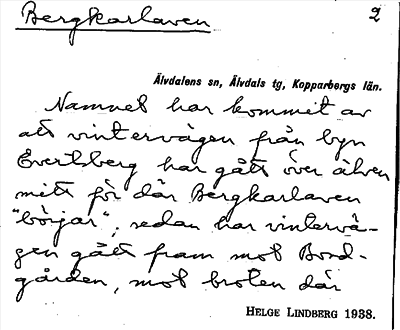 Bergkarlaven 2
Älvdalens sn, Älvdals tg, Kopparbergs län.
Namnet har kommit av
att vintervägen från byn
Evertsberg har gått över älven
mitt för där Bergkarlaven
"börjar", sedan har vintervä-
gen gått fram mot Bond-
gården, mot broten där
HELGE LINDBERG 1938.